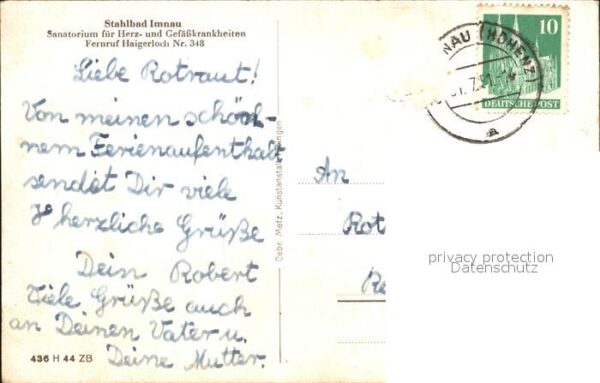 Stahlbad Imnau
Sanatorium für Herz- und Gefäßkrankheiten
Fernruf Haigerloch Nr. 348
Liebe Rotraut!
Von meinen schön-
nem Ferienaufenthalt
sendet Dir viele
herzliche Grüße
Dein Robert
Viele Grüße auch
an Deinen Vater u.
Deine Mutter.
436 H 44 ZB
Gebr. Metz, Kunstanstalt, Tübingen
NAU (HOHENZ)
a
10
DEUTSCHE POST
An
Rot
Re
privacy protection
Datenschutz